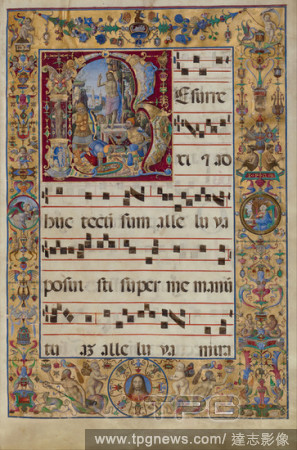 Resurre
xi ⁊ ad
huc tecu sum alle lu ya
posui sti super me manū
tu az alle lu ya mira
TPG
www.tpgnews.com / 達志影像